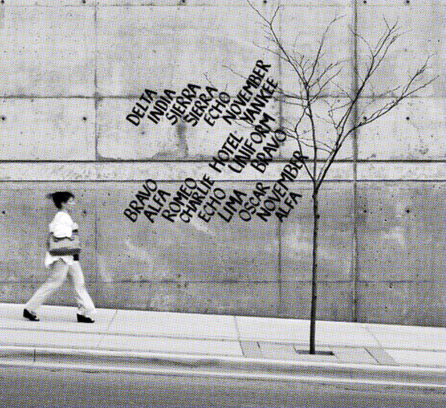 DELTA
INDIA
SIERRA
SIERRA
ECHO
NOVEMBER
YANKEE
HOTEL
UNIFORM
BRAVO
BRAVO
ALFA
ROMEO
CHARLIE
ECHO
LIMA
OSCAR
NOVEMBER
ALFA